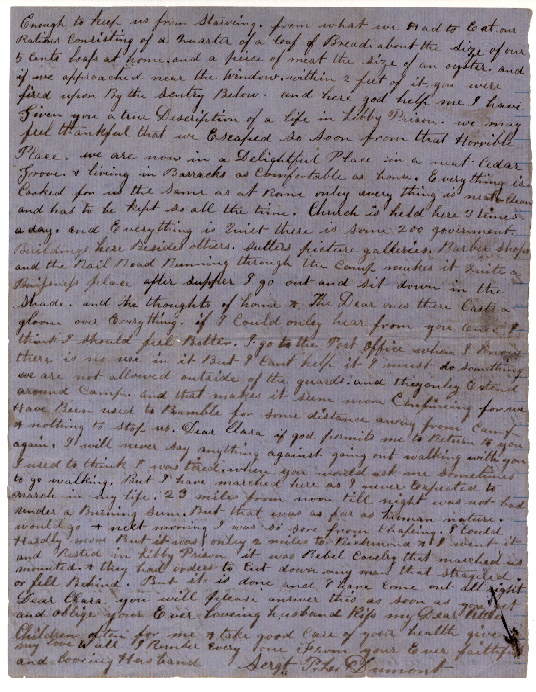 Enough to keep us from Starving. from what we Had to Eat. our
Rations Consisting of a Quarter of a Loaf of Bread. about the size of our
5 cents loafs at home. and a piece of meat the size of an oyster. and
if we approached near the window. within 2 feet of it you were
fired upon By the Sentry Below. and here god help me I have
Given you a true Description of a life in Libby Prison. we may
feel thankful that we Escaped so soon from that Horrible
Place. we are now in a Delightful Place in a neat Cedar
Grove. & living in Barracks as Comfortable as home. Everything is
Cooked for us the same as at Home only every thing is neat & clean
and has to be kept so all the time. Church is held here 3 times
a day. and Everything is Quiet there is some 200 government
Buildings here Besides others. Sutlers picture galleries. Barber Shops
and the Rail Road Running through the Camp makes it Quite a
Buisness place after supper I go out and sit down in the
Shade. and the thoughts of home & The Dear ones there Casts a
gloom over Everything. if I Could only hear from you once I
think I should feel Better. I go to the Post Office when I know
there is no use in it But I Cant help it I must do something
we are not allowed outside of the guards. and they only Extend
around Camp. and that makes it seem more Confineing for we
Have Been used to Ramble for some distance away from Camp
& nothing to stop us. Dear Clara if god permits me to Return to you
again. I will never say anything against going out walking with you
I used to think I was tired. when you would ask me sometimes
to go walking. But I have marched here as I never Expected to
march in my life. 23 miles from noon till night was not bad
under a Burning Sun. But that was as far as human nature
would go & next morning I was so sore from Chafeing I Could
Hardly move But it was only 2 miles to I went it
and Rested in Libby Prison it was Rebel Cavalry that marched us
mounted. & they had orders to Cut down any man that straggled
or fell Behind. But it is done and I have Come out all right
Dear Clara. you will please answer this as soon as
and oblige your Ever loveing husband Kiss my Dear
Children often for me & take good Care of your health give
my love to all I Remember Every one From your Ever faithful
and loveing Husband Sergt